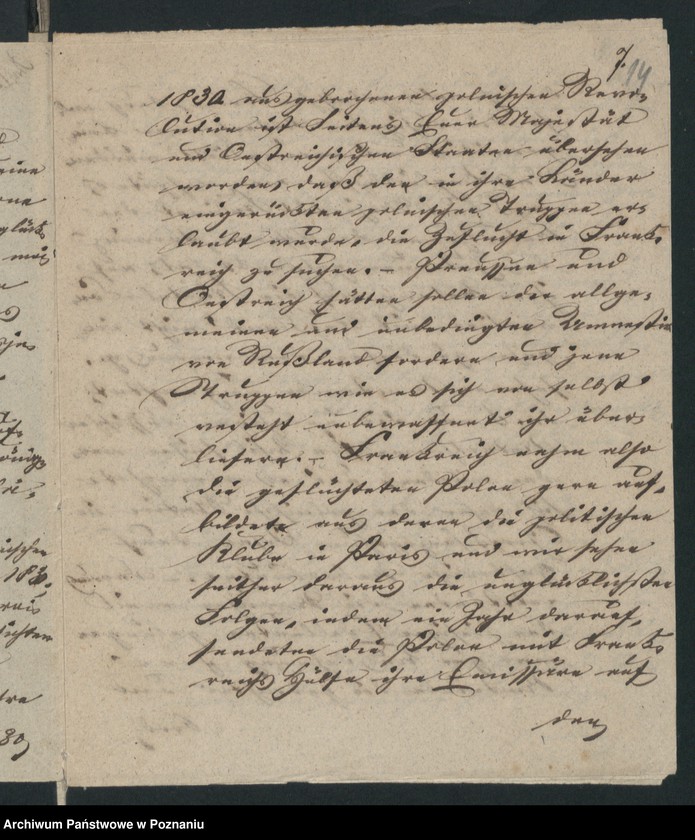 7.
14
1830 ausgebrochenen polnischen Revo-
lution ist Seitens Euer Majestät
und Oestreichischen Staaten übersehen
worden, daß den in ihre Länder
eingerückten polnischen Truppen er-
laubt wurde, die Zuflucht in Frank-
reich zu suchen. – Preussen und
Oestreich hätten sollen die allge-
meine und unbedingte Amnestie
von Rußland fordern und jene
Truppen wie es sich von selbst
versteht unbewaffnet ihr über-
liefern. – Frankreich nahm also
die geflüchteten Polen gern auf,
bildete aus denen die politischen
Klubs in Paris und wir sehen
seither daraus die unglücklichsten
Folgen, indem ein Jahr darauf,
sendeten die Polen mit Frank-
reichs Hülfe ihre Emissäre auf
den
Archiwum Państwowe w Poznaniu